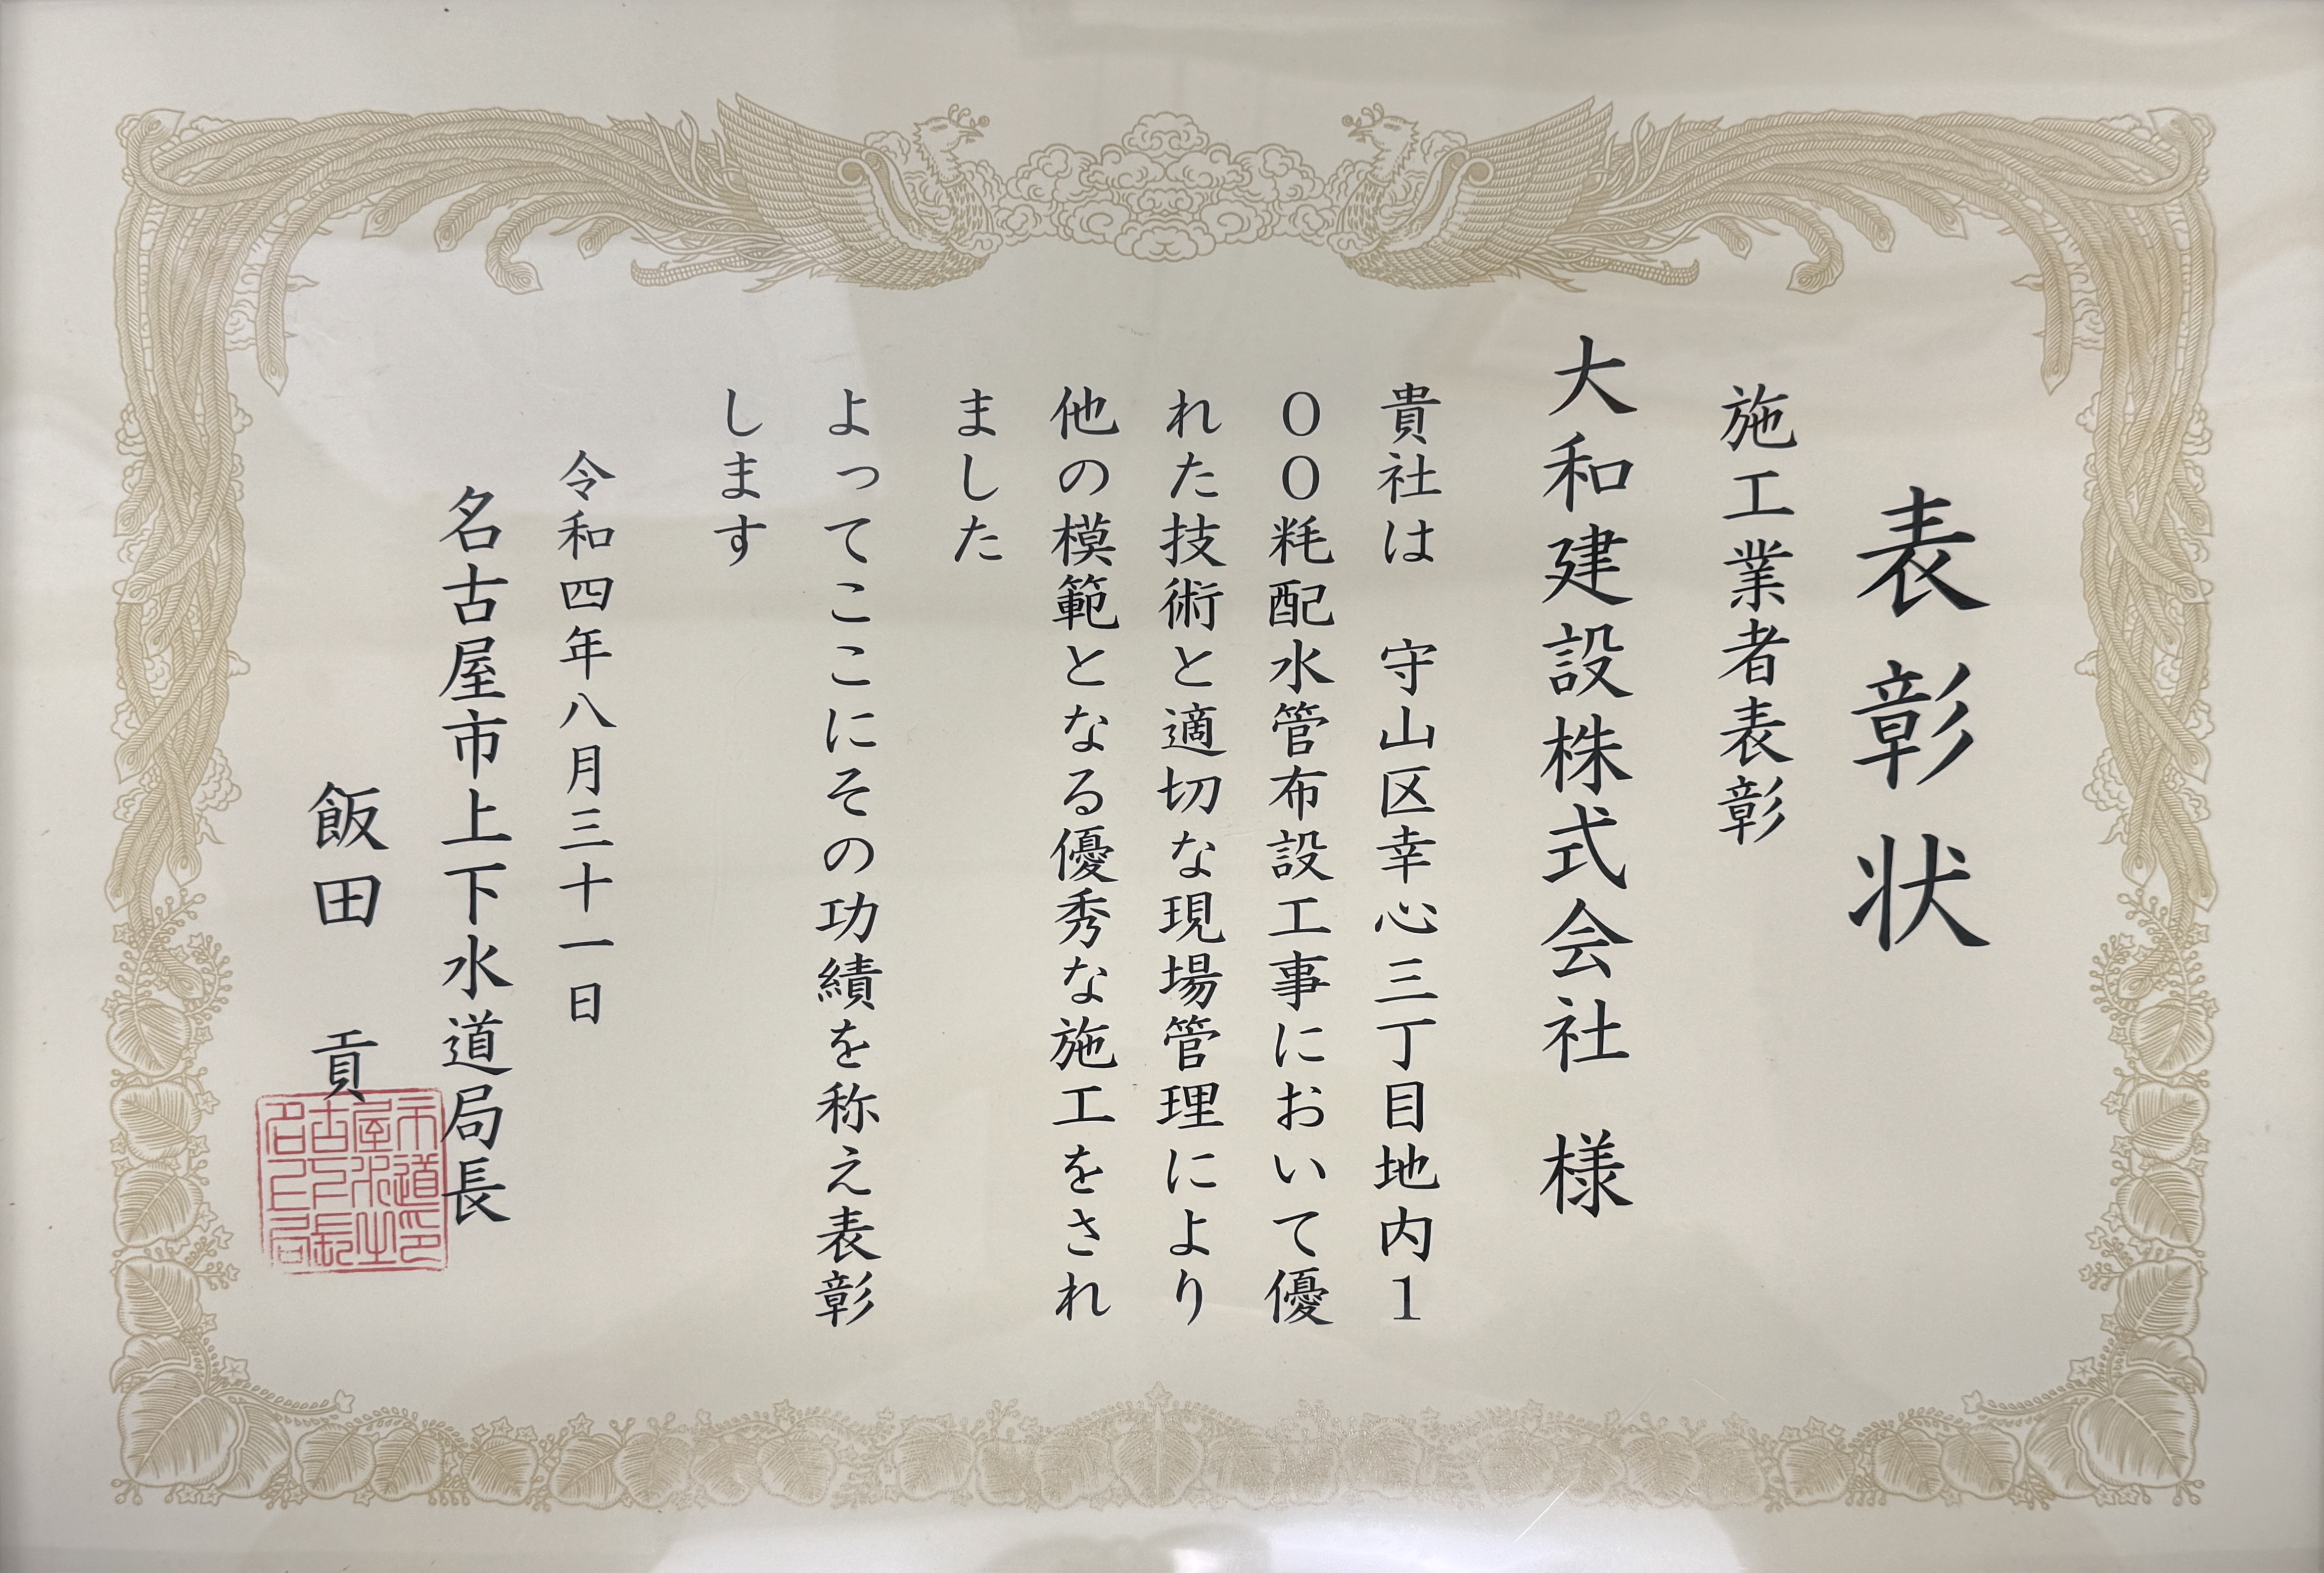 表彰状
施工業者表彰
大和建設株式会社 様
貴社は 守山区幸心三丁目地内1
００粍配水管布設工事において優
れた技術と適切な現場管理により
他の模範となる優秀な施工をされ
ました
よってここにその功績を称え表彰
します
令和四年八月三十一日
名古屋市上下水道局長
飯田 貢